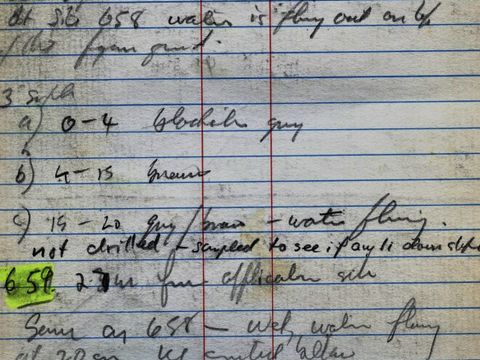 At site 658 water is flowing out on top
of the frozen ground.
3
a) 0-4 blackish grey
b) 4-15 brown
c) 15-20 grey/brown - water flowing.
not drilled - sampled to see if any ll down slope
659 from application site
Same as 658 - wet, water flowing
at 20cm